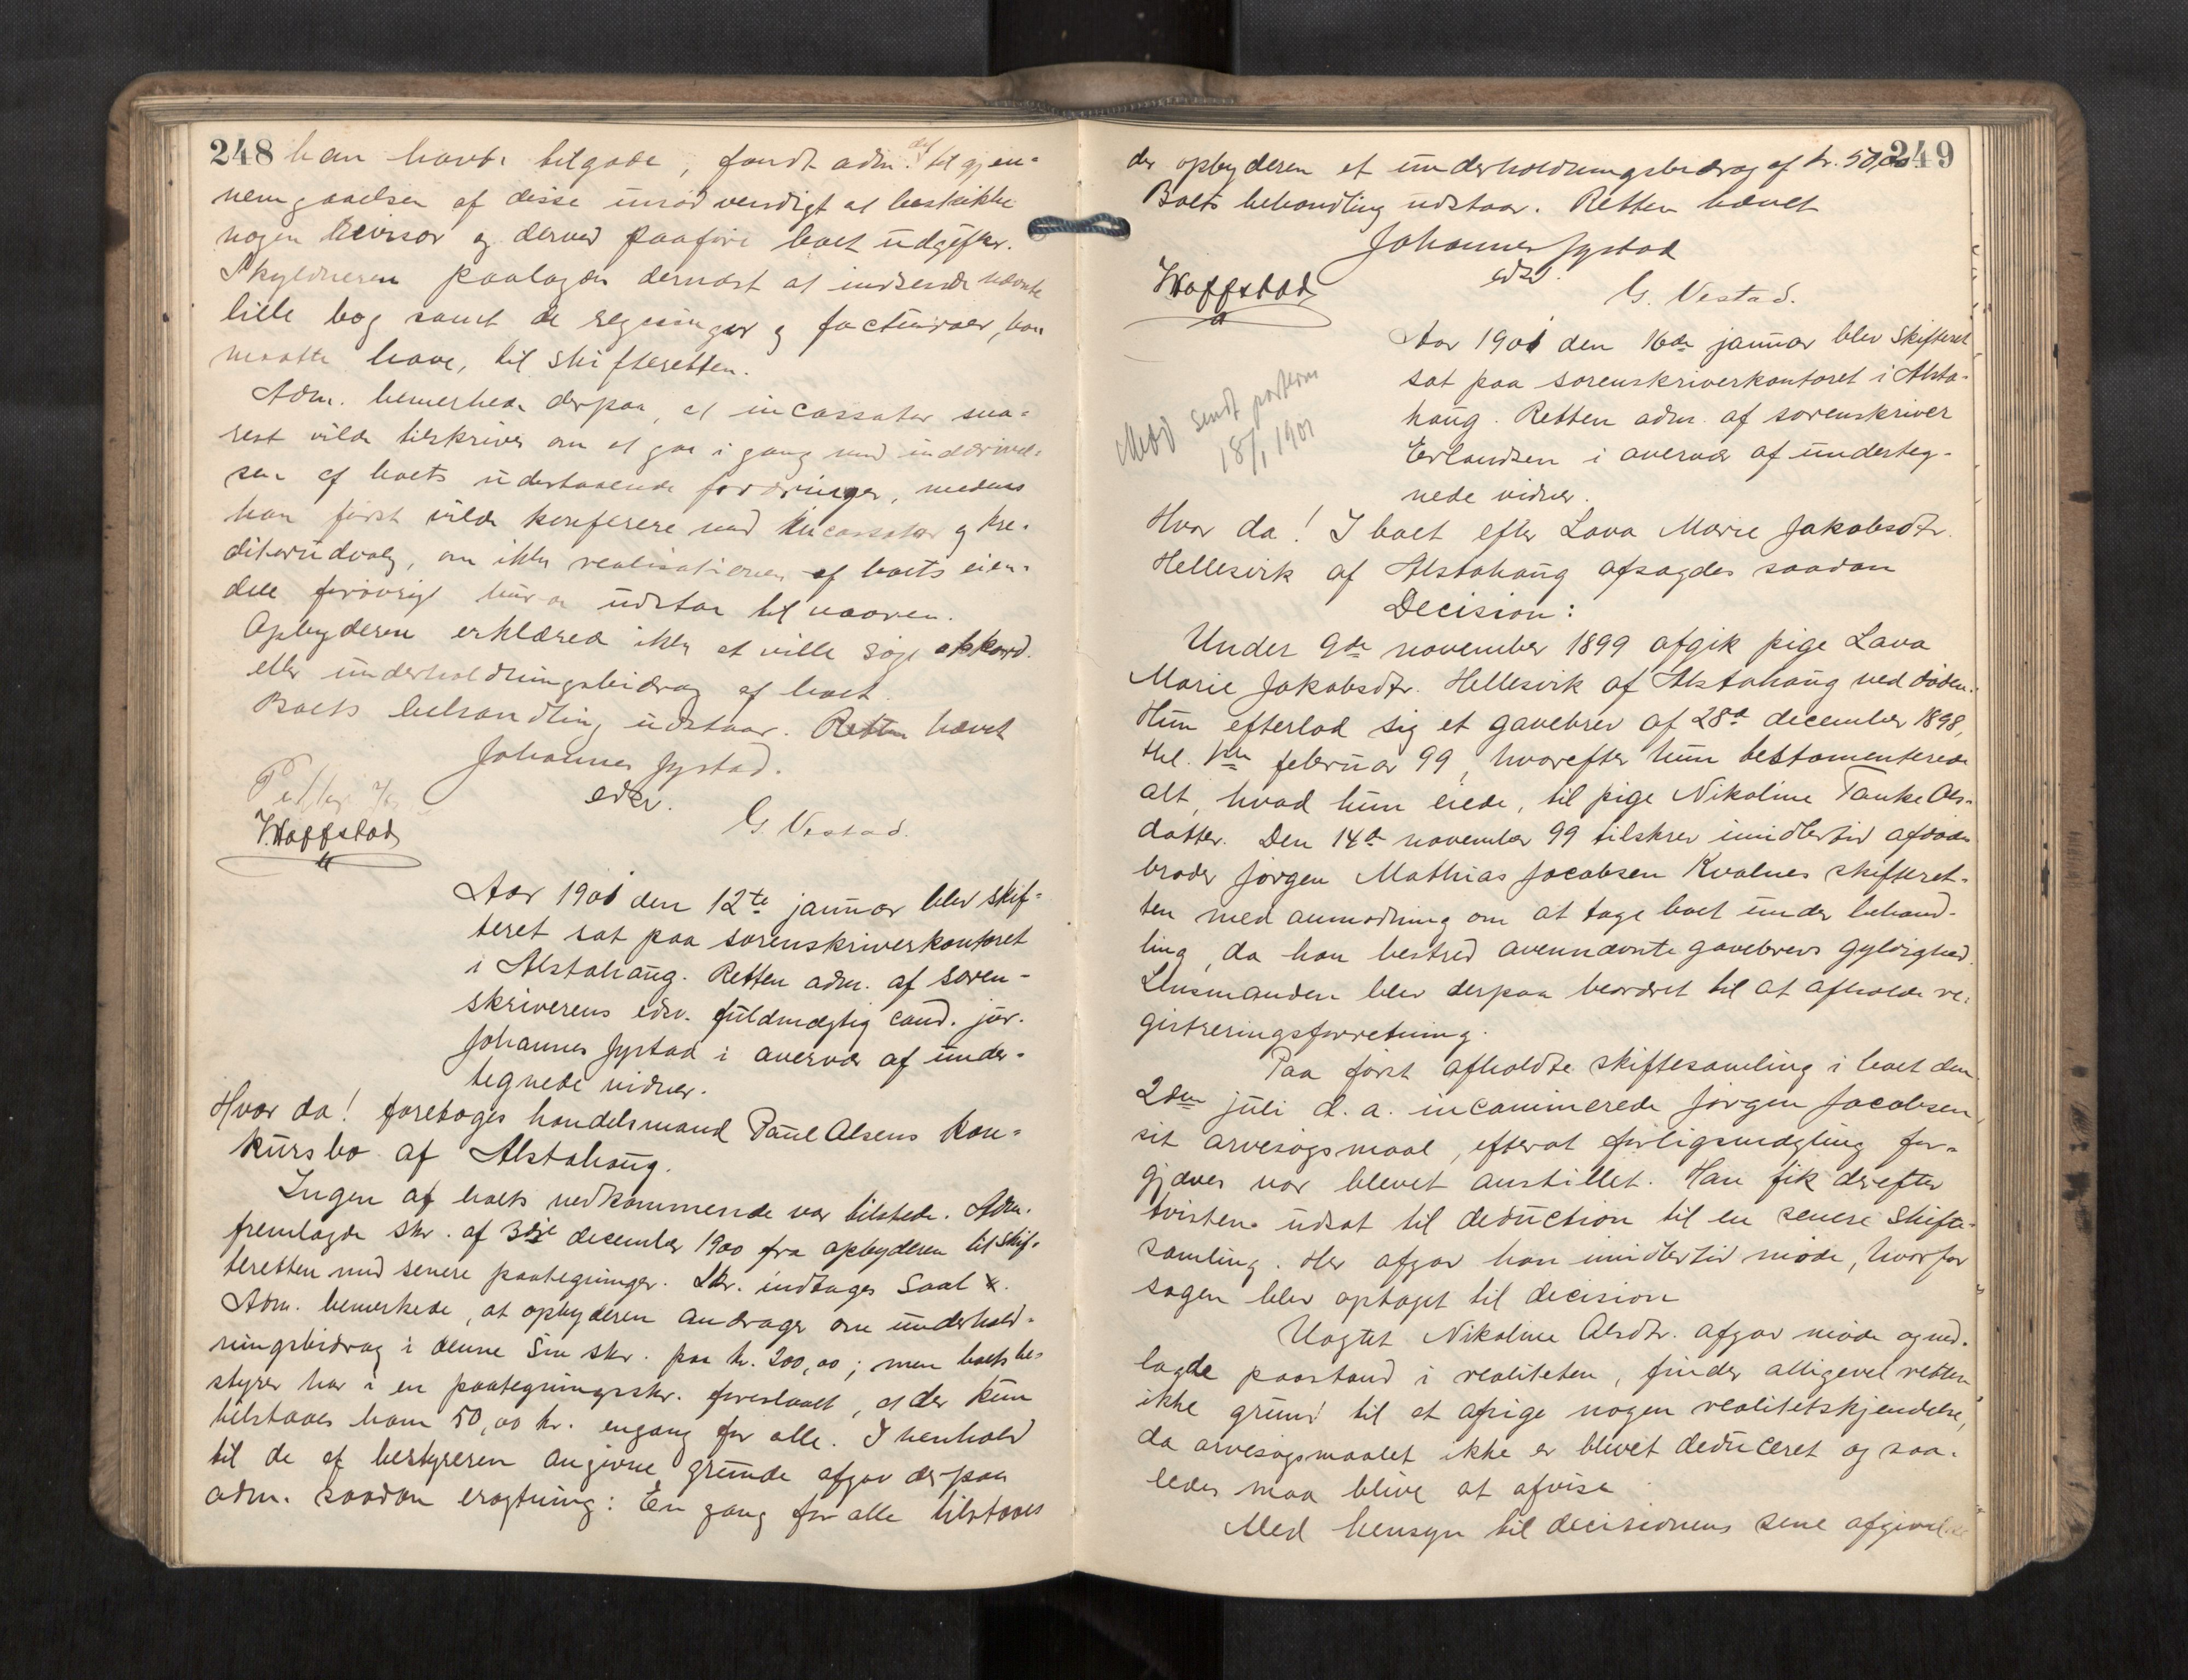 248
han havde tilgode, fandt adm. det til gjen-
nemgaaelsen af disse unødvendigt at beskikke
nogen Revisor og derved paaføre boet udgifter.
Skyldneren paalagdes dernæst at indsende nævnte
lille bog samt de regninger og facturaer, han
maatte have, til skifteretten.
Adm. bemerkede derpaa, at incassator sna-
rest vilde tilskrives om at gaa i gang med inddrivel-
sen af boets udestaaende fordringer, medens
han først vilde konferere med incassator og kre-
ditorudvalg, om ikke realisationen af boets eien-
dele forøvrigt burde udstaa til vaaren.
Opbyderen erklærede ikke at ville søge akkord
eller underholdningsbidrag af boet.
Boets behandling udstaar. Retten hævet
Johannes Jystad.
edsv.
G. Vestad.
V. Hoffstad
Aar 1901 den 12te januar blev skif-
teret sat paa sorenskriverkontoret
i Alstahaug. Retten adm. af soren-
skriverens edsv. fuldmægtig cand. jur.
Johannes Jystad i overvær af under-
tegnede vidner.
Hvor da! foretoges handelsmand Paul Olsens kon-
kursbo af Alstahaug.
Ingen af boets vedkommende var tilstede. Adm.
fremlagde skr. af 3die december 1900 fra opbyderen til skif-
teretten med senere paategninger. Skr. indtages saal x.
Adm. bemerkede, at opbyderen andrager om underhold-
ningsbidrag i denne sin skr. paa kr. 200,00; men boets be-
styrer har i en paategningsskr. foreslaaet, at der kun
tilstaaes ham 50,00 kr. engang for alle. I henhold
til de af bestyreren angivne grunde afgav derpaa
adm. saadan eragtning: En gang for alle tilstaaes
249
der opbyderen et underholdningsbidrag af kr. 50,00
Boets behandling udstaar. Retten hævet
Johannes Jystad
edsv.
Hoffstad
G. Vestad.
Aar 1901 den 16de januar blev skifteret
sat paa sorenskriverkontoret i Alsta-
haug. Retten adm. af sorenskriver
Erlandsen i overvær af underteg-
nede vidner.
Medd sendt parterne
18/1 1901
Hvor da! I boet efter Lava Marie Jakobsdtr.
Hellesvik af Alstahaug afsagdes saadan
Decision:
Under 9de november 1899 afgik pige Lava
Marie Jakobsdtr. Hellesvik af Alstahaug ved døden.
Hun efterlod sig et gavebrev af 28de december 1898,
thl. februar 99, hvorefter hun testamenterede
alt, hvad hun eiede, til pige Nikoline Tanke Ols-
datter. Den 14de november 99 tilskrev imidlertid afdødes
broder Jørgen Mathias Jacobsen Kvalnes skifteret-
ten med anmodning om at tage boet under behand-
ling, da han bestred ovennævnte gavebrevs gyldighed.
Lensmanden blev derpaa beordret til at afholde re-
gistreringsforretning.
Paa først afholdte skiftesamling i boet den
2den juli d. a. incaminerede Jørgen Jacobsen
sit arvesøgsmaal, efterat forligsmægling for-
gjæves var blevet anstillet. Han fik derefter
tvisten udsat til deduction til en senere skifte-
samling. Her afgav han imidlertid møde, hvorfor
sagen blev optaget til decision
Uagtet Nikoline Olsdtr. afgav møde og ned-
lagde paastand i realiteten, finder alligevel retten
ikke grund til at afsige nogen realitetskjendelse,
da arvesøgsmaalet ikke er blevet deduceret og saa-
ledes maa blive at afvise
Med hensyn til decisionens sene afgivelse